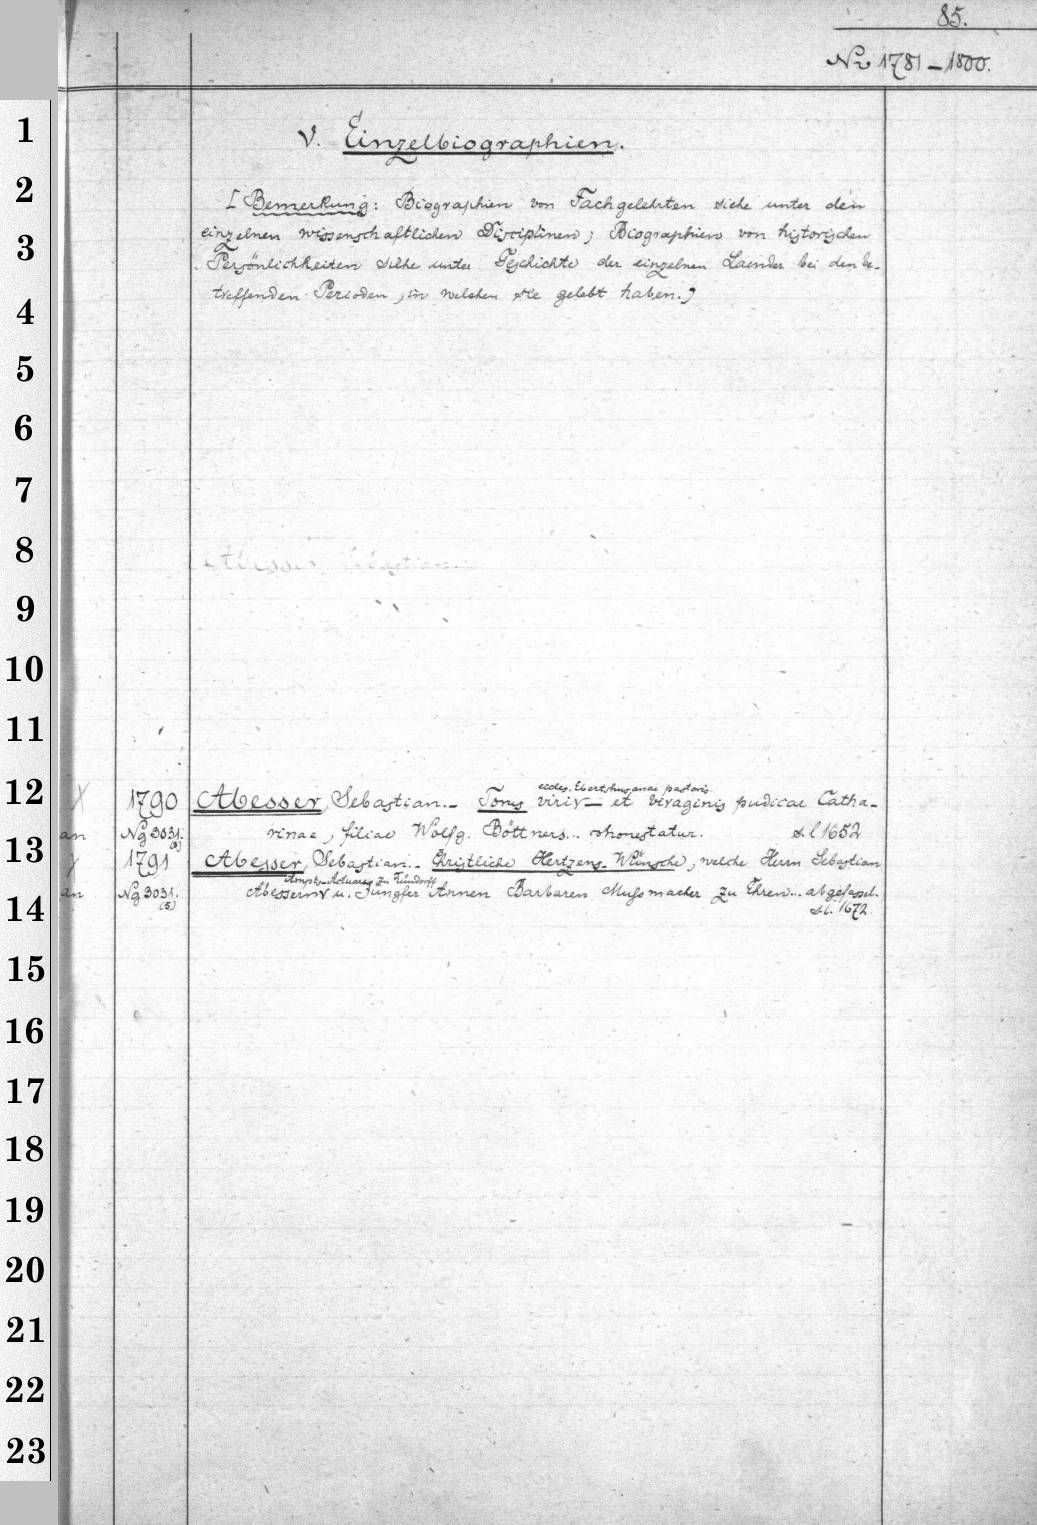 85.
No 1781-1800.
V. Einzelbiographien.
[Bemerkung: Biographien von Fachgelehrten siehe unter den
einzelnen wissenschaftlichen Disciplinen; Biographien von historischen
Persönlichkeiten siehe unter Geschichte der einzelnen Laender bei den be-
treffenden Perioden, in welchen sie gelebt haben.]
Abesser, Sebastian
eccles. Ebertshusanae pastoris
1790 Abesser, Sebastian.- Torus viri et viraginis pudicae Catha-
an Ng 3031. rinae, filiae Wolfg. Böttners... cohonestatur. s.l 1652
1791 Abesser, Sebastian.- Christliche Hertzens-Wünsche, welche Herrn Sebastian
Ampts-Actuarey zu Tündorff
an Ng 3031. (5) Abessern u. Jungfer Annen Barbaren Mussmacher zu Ehren... abgefasset.
s.l. 1672
1
2
3
4
5
6
7
8
9
10
11
12
13
14
15
16
17
18
19
20
21
22
23